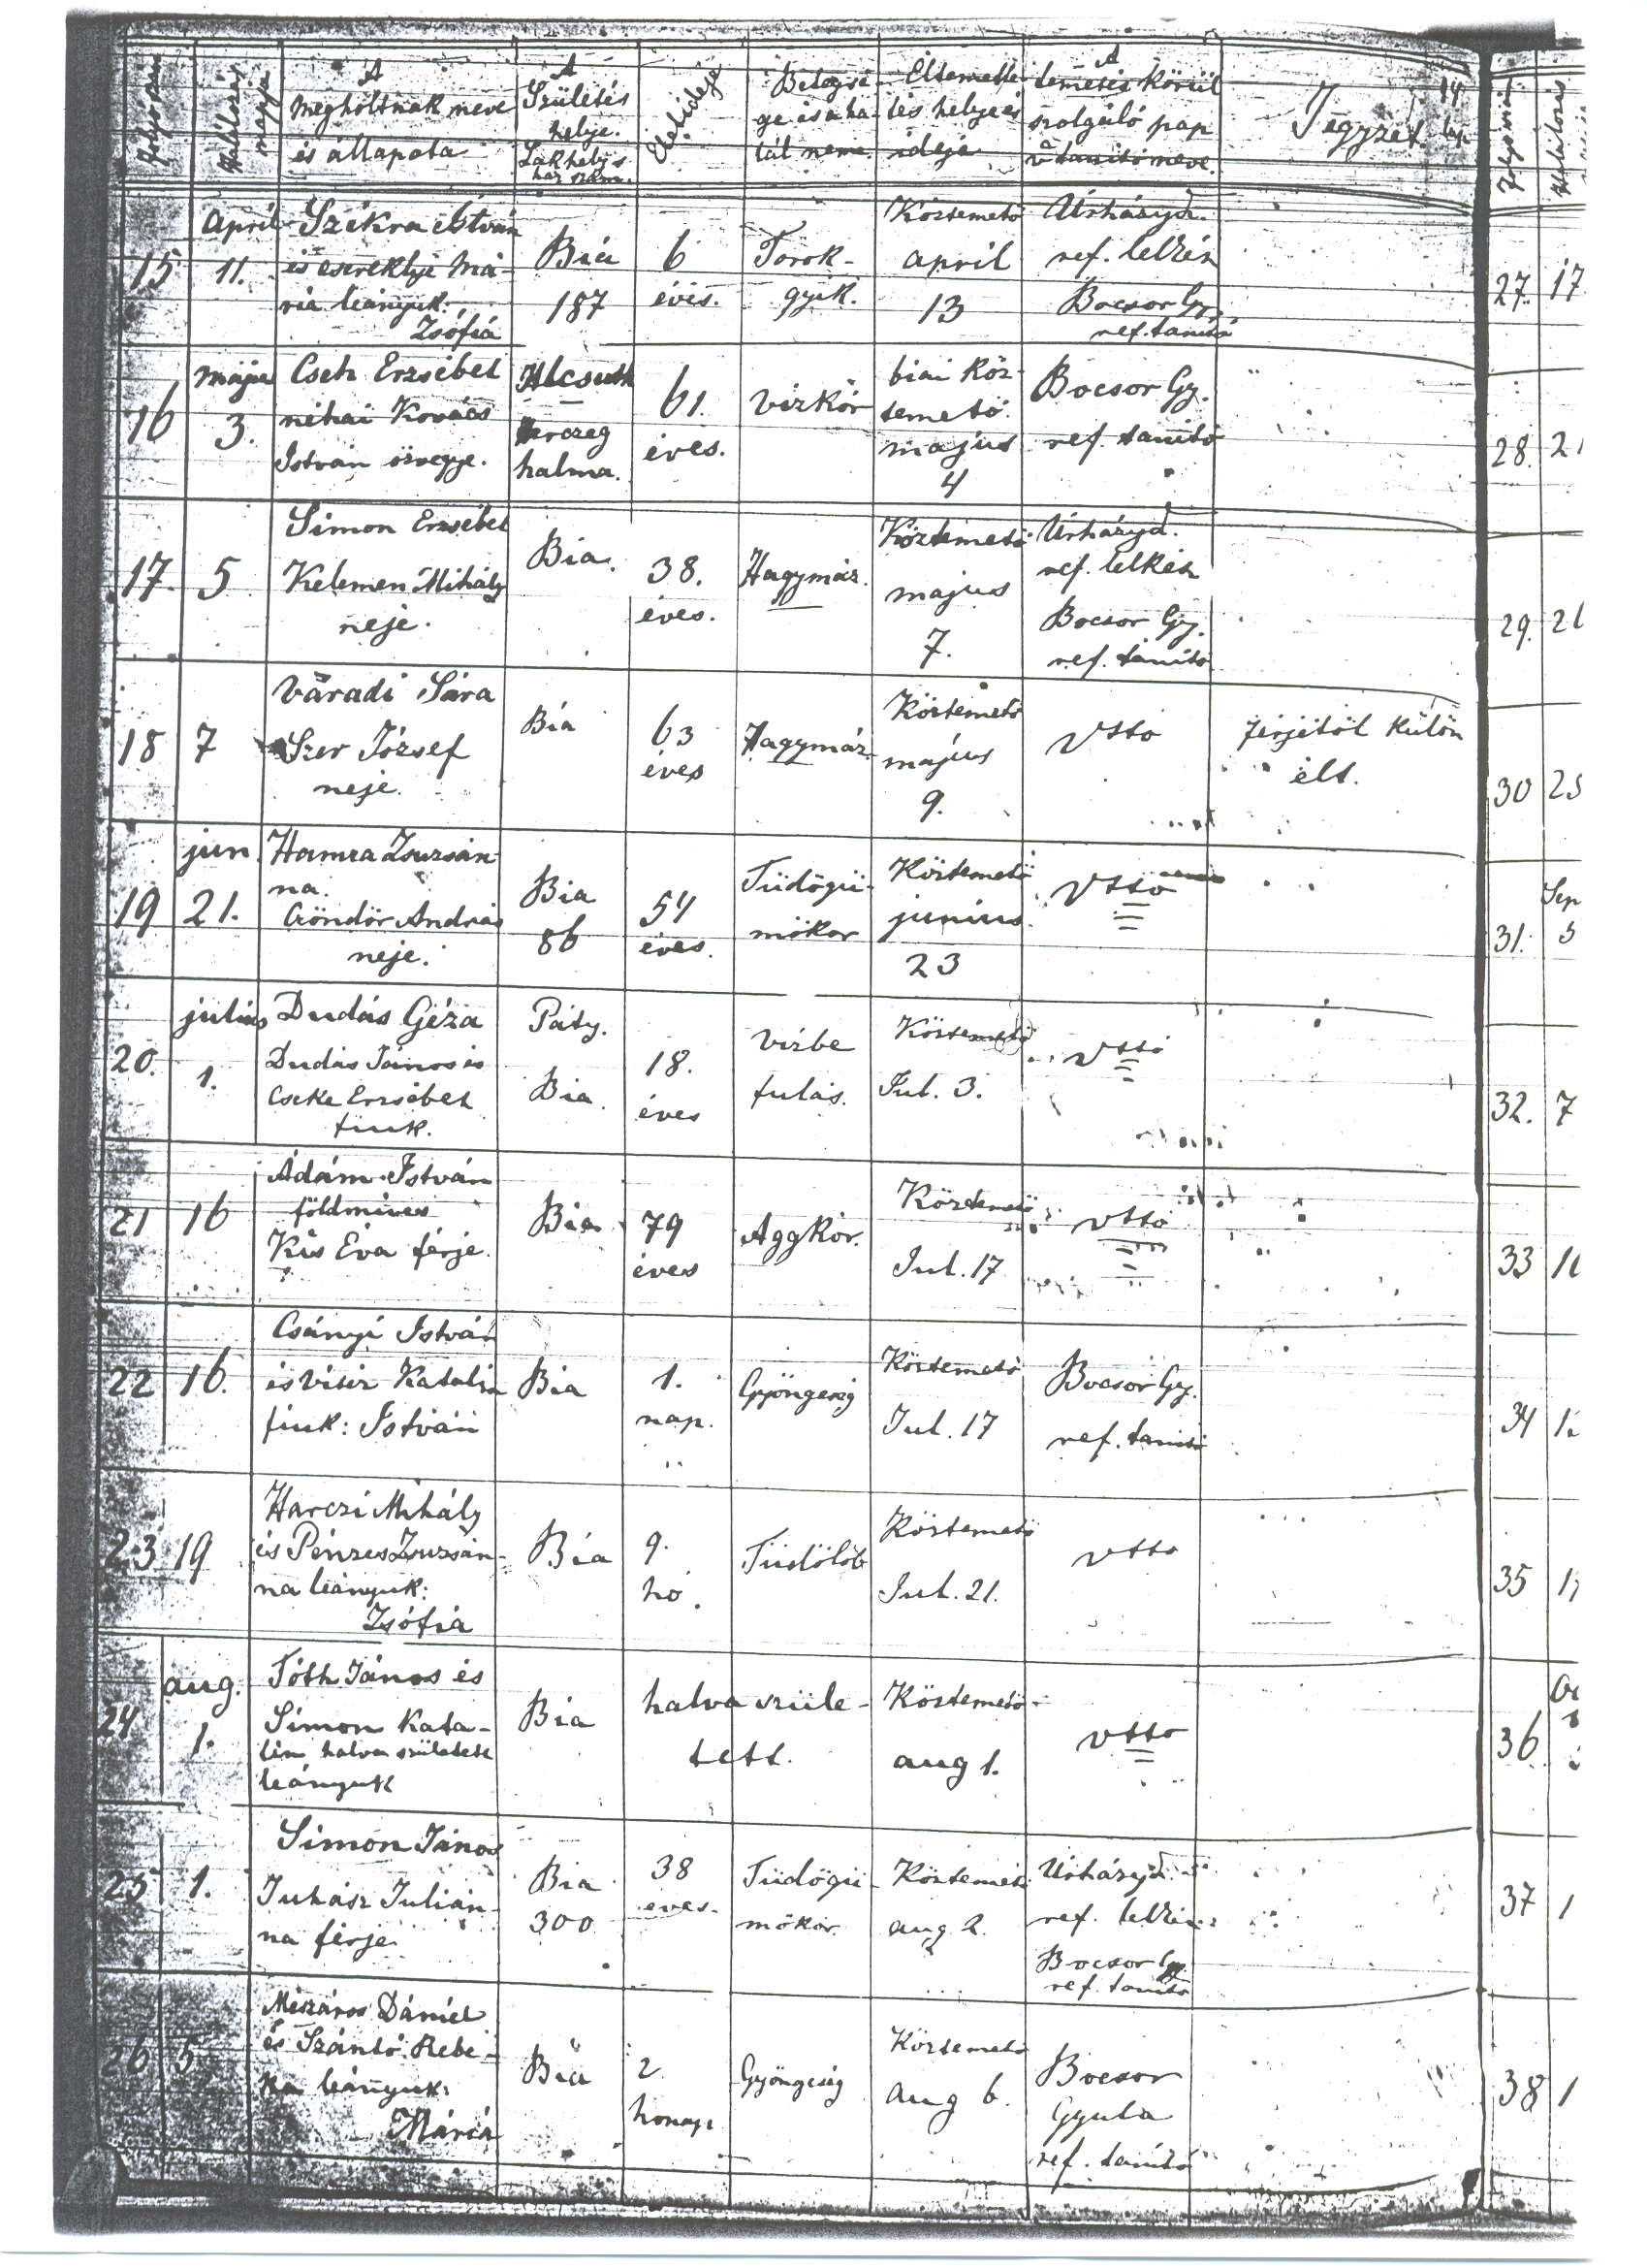 Folyó szám
Halálozás napja
A
meghóltnak neve
és állapota
A
Születés
helye.
Lakhely s
ház szám.
Életideje
Betegsé-
ge és a ha-
lál neme.
Eltemette-
tés helye és
ideje
A
temetés körül
szolgáló pap
v. tanító neve.
Jegyzet
14
lap
15
april
11.
Szekra István
és cserektye Má-
ria leányuk:
Zsófia
Bia
187
6
éves.
Torok-
gyik.
Köztemető
april
13
Úrházy d.
ref. lelkész
Bocsor Gy.
ref. tanító
16
május
3.
Cseh Erzsébet
néhai Kovács
István özvegye.
Alcsuth
Herczeg
halma.
61.
éves.
vizkór
biai köz-
temető.
május
4
Bocsor Gy.
ref. tanító
17.
5
Simon Erzsébet
Kelemen Mihály
neje.
Bia.
38.
éves.
Hagymáz.
Köztemető
május
7.
Úrházy d.
ref. lelkész
Bocsor Gy.
ref. tanító
18
7
Váradi Sára
Szer József
neje.
Bia
63
éves
Hagymáz
Köztemető
május
9.
Vsso
férjétöl külön
élt.
19
jun.
21.
Hamza Zsuzsán-
na.
Göndör András
neje.
Bia
86
54
éves.
Tüdögü-
mökor
Köztemető
junius.
23
Vsso
20.
julius
1.
Dudás Géza
Dudás János és
Cseke Erzsébet
fiuk.
Páty.
Bia.
18.
éves
vizbe
fulás.
Köztemető
Jul. 3.
vsso
21
16
Ádám István
földmíves
Kis Éva férje.
Bia
79
éves
Aggkór.
Köztemető
Jul. 17
vsso
22
16.
Csányi István
és Vizir Katalin
fiuk: István
Bia
1.
nap.
Gyöngeség
Köztemető
Jul. 17
Bocsor Gy.
ref. tanító
23
19
Harczi Mihály
és Pénzes Zsuzsán-
na leányuk:
Zsófia
Bia
9.
hó.
Tüdőlob
Köztemető
Jul. 21.
vsso
24
aug.
1.
Tóth János és
Simon Kata-
lin halva született
leányuk
Bia
halva szüle-
tett.
Köztemető
aug 1.
vsso
25
1.
Simon János
Juhász Julián-
na férje
Bia
300
38
éves.
Tüdögü-
mökór.
Köztemető
aug 2.
Úrházy d.
ref. lelkész
Bocsor Gy.
ref. tanító
26
5
Mészáros Dániel
és Szántó Rebe-
ka leányuk:
Mária
Bia
2
honap
Gyöngeség
Köztemető
aug 6.
Bocsor
Gyula
ref. tanító
27.
17
28.
29.
30
31.
Sep
32.
7
33
34
35
36
37
38